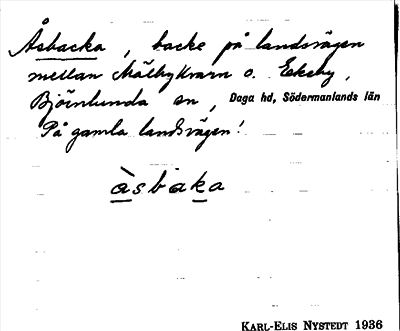 Åsbacka, backe på landsvägen
mellan Mälbykvarn o. Ekeby,
Björnlunda sn, Daga hd, Södermanlands län
På gamla landsvägen!
åsbaka
KARL-ELIS NYSTEDT 1936